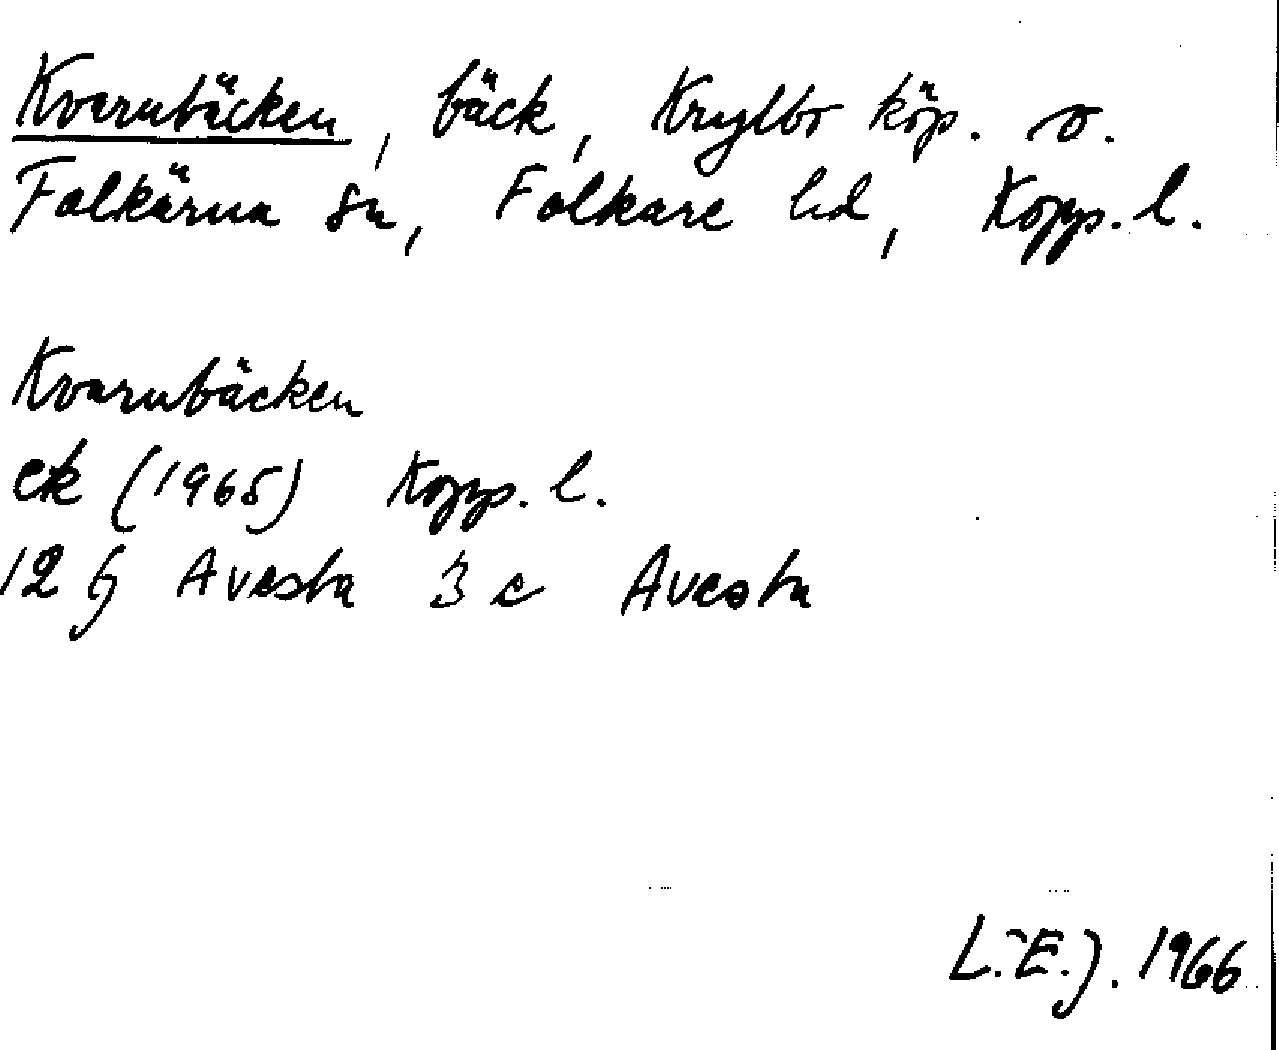 Kvarnbäcken, bäck, Krylbo köp. o.
Folkärna sn, Folkare hd, Kopp. l.
Kvarnbäcken
ek (1965) Kopp. l.
12 G Avesta 3 c Avesta
L.-E.J. 1966